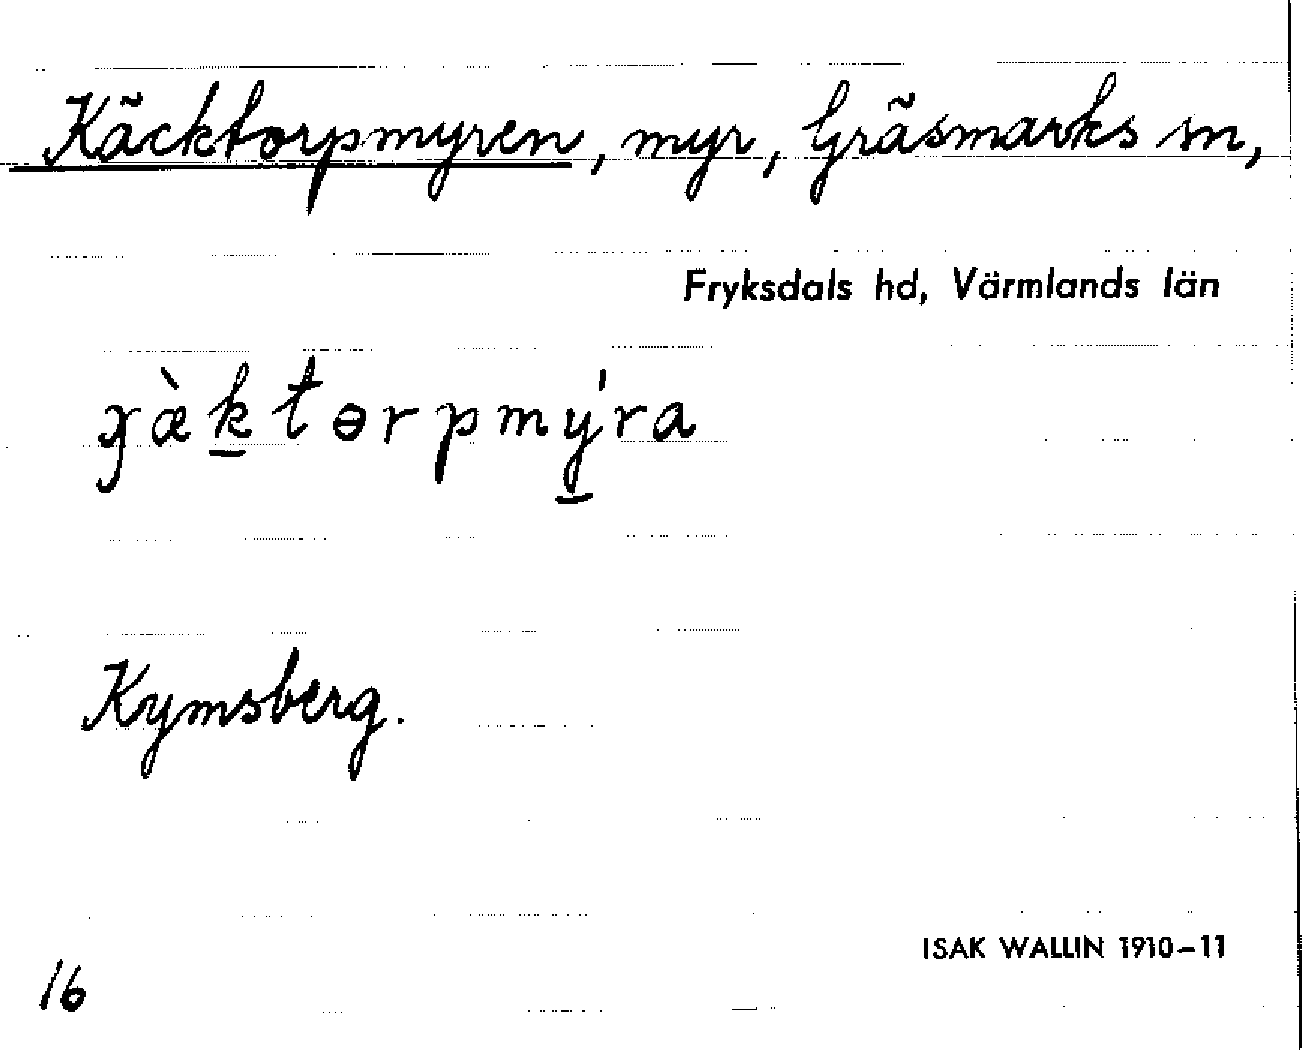 Käcktorpmyren, myr, Gräsmarks sn,
Fryksdals hd, Värmlands län
ɟæ̀k̠tɵrpmý̠ra
Kymsberg.
ISAK WALLIN 1910–11
16